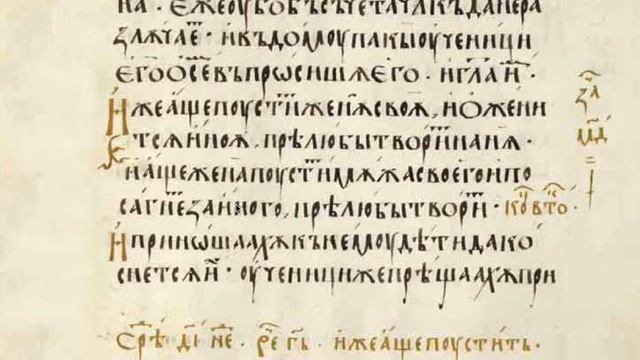 на · ежеоубобъсъчетачл҃къданера
злѫчае · ивъдомоупакыоученици
егоосемъвъпросишѧего · игл҃аим
Ижеащепоуститженѫсвоѫ, иожени
тсѧиноѧ, прѣлюбытворитнанѧ
Иащеженапоуститмѫжасвоегоипо
сагнетзаиного, прѣлюбытворит ·
Иприношаахѫкънемоудѣтидако
снетсѧих · оученицижепрѣщаахѫпри
ижеащепоустить